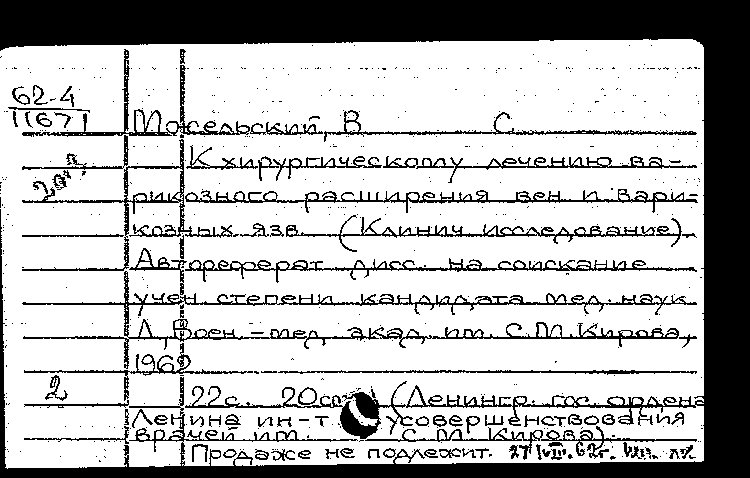 62-4
11671
Можельский, В С.
2 экз.
К хирургическому лечению ва-
рикозного расширения вен и вари-
козных язв. (Клинич исследование).
Автореферат дисс. на соискание
учен. степени кандидата мед. наук
Л., Воен.-мед. акад. им. С.М.Кирова,
1962
2
22с. 20см (Ленингр. гос. ордена
Ленина ин-т усовершенствования
врачей им. С. М. Кирова).
Продаже не подлежит.